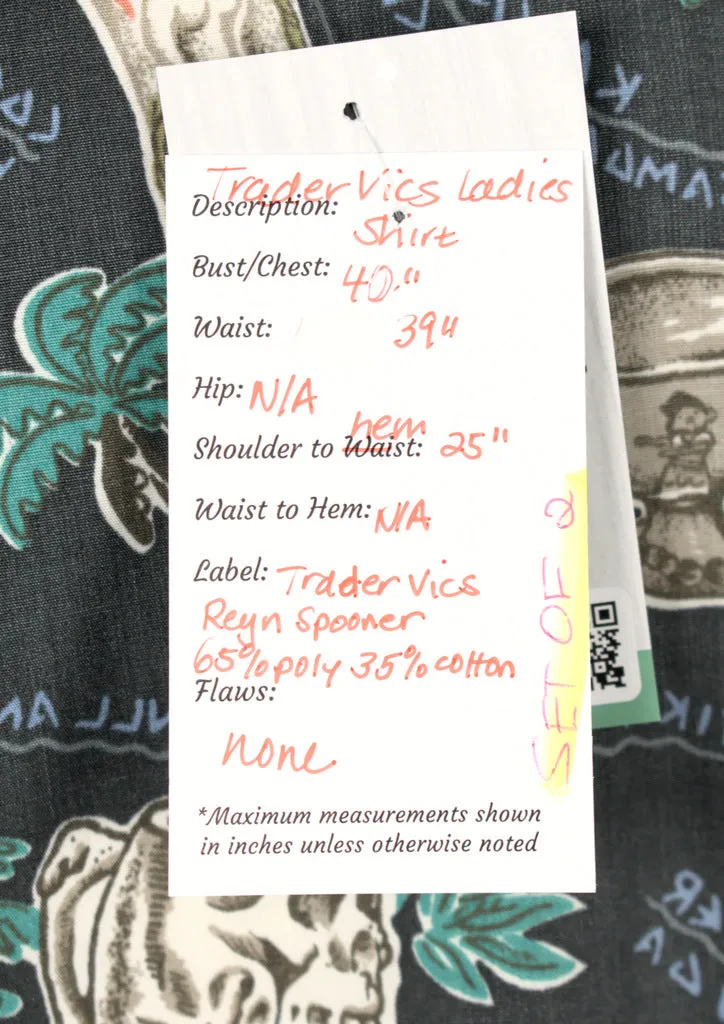 Trader Vics Ladies
Description:
Shirt
Bust/Chest: 40."
Waist: 39"
Hip: N/A
hem
Shoulder to Waist: 25"
Waist to Hem: N/A
Label: Trader Vics
Reyn Spooner
65% poly 35% cotton
Flaws:
none
*Maximum measurements shown
in inches unless otherwise noted
SET OF 2